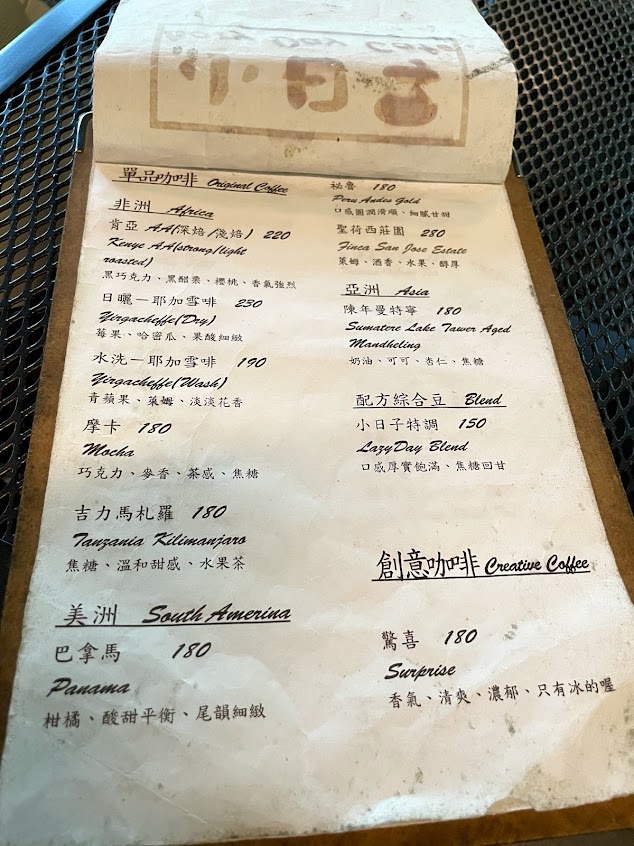 小日子
單品咖啡 Original Coffee
非洲 Africa
肯亞 AA(深焙/淺焙) 220
Kenye AA(strong/light
roasted)
黑巧克力、黑醋栗、櫻桃、香氣強烈
日曬－耶加雪啡 230
Yirgacheffe(Dry)
莓果、哈密瓜、果酸細緻
水洗－耶加雪啡 190
Yirgacheffe(Wash)
青蘋果、萊姆、淡淡花香
摩卡 180
Mocha
巧克力、麥香、茶感、焦糖
吉力馬札羅 180
Tanzania Kilimanjaro
焦糖、溫和甜感、水果茶
美洲 South Amerina
巴拿馬 180
Panama
柑橘、酸甜平衡、尾韻細緻
祕魯 180
Peru Andes Gold
口感圓潤滑順、細膩甘甜
聖荷西莊園 280
Finca San Jose Estate
萊姆、酒香、水果、醇厚
亞洲 Asia
陳年曼特寧 180
Sumatere Lake Tawer Aged
Mandheling
奶油、可可、杏仁、焦糖
配方綜合豆 Blend
小日子特調 150
LazyDay Blend
口感厚實飽滿、焦糖回甘
創意咖啡 Creative Coffee
驚喜 180
Surprise
香氣、清爽、濃郁、只有冰的喔